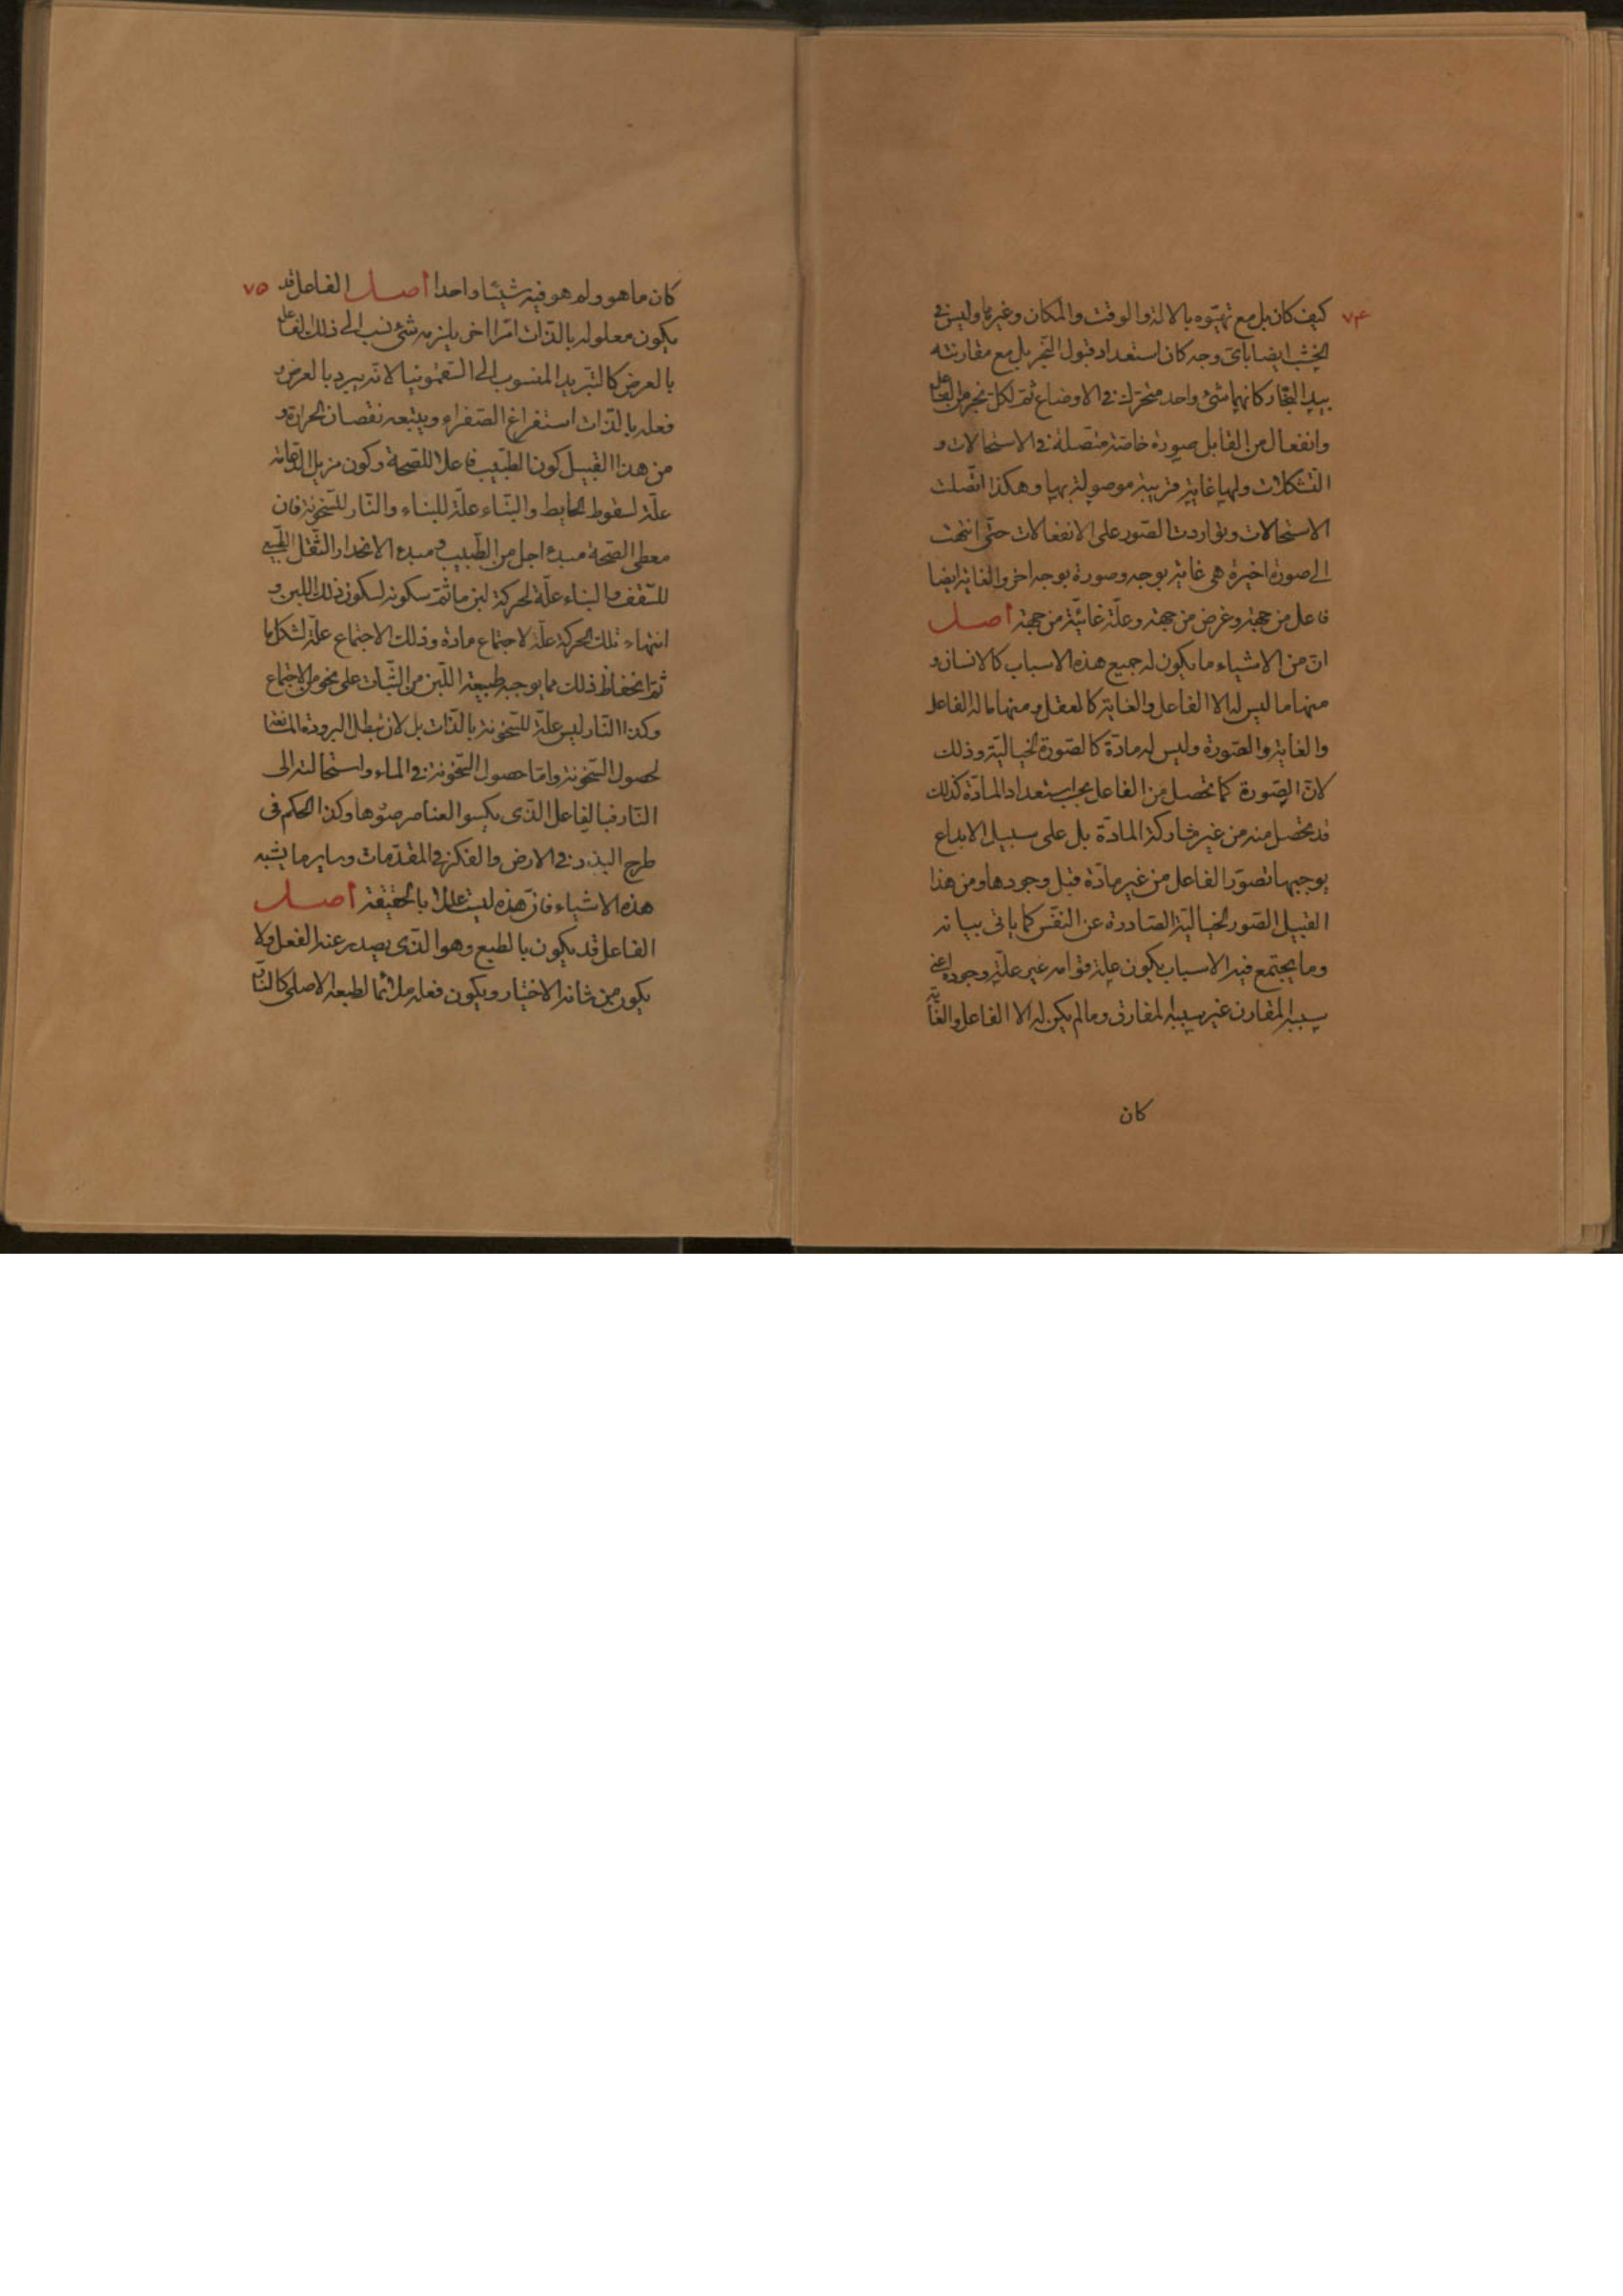 ٧٤
كيف كان بل مع تهيّوه بالالة والوقت والمكان وغيرها وليس في
الخشب ايضا باىّ وجه كان استعداد قبول النّجر بل مع مقارنته
بيد النجّار كانهما شئ واحد متحرّك في الاوضاع ثمّ لكل نجر من الفاعل
وانفعال من القابل صورة خاصّة متّصلة في الاستحالات و
التّشكلات ولها غاية قريبة موصولة بها وهكذا اتّصلت
الاستحالات وتواردت الصّور على الانفعالات حتّى انتهت
الى صورة اخيرة هى غاية بوجه وصورة بوجه اخر والغاية ايضا
فاعل من جهة وغرض من جهة وعلّة غائيّة من جهة اصل
انّ من الاشياء ما يكون له جميع هذه الاسباب كالانسان و
منها ما ليس له الا الفاعل والغاية كالعقل ومنها ما له الفاعل
والغاية والصّورة وليس له مادّة كالصّورة الخياليّة وذلك
لانّ الصّورة كما تحصل من الفاعل بحسب استعداد المادّة كذلك
قد تحصل منه من غير مشاركة المادّة بل على سبيل الابداع
يوجبها تصوّر الفاعل من غير مادّة قبل وجودها ومن هذا
القبيل الصّور الخياليّة الصّادرة عن النفّس كما ياتى بيانه
وما يجتمع فيه الاسباب يكون علة قوامه غير علّة وجوده اعنى
سببه المقارن غير سببه المفارق وما لم يكن له الا الفاعل والغاية
كان
٧٥
كان ما هو ولم هو فيه شيئا واحدا اصل الفاعل قد
يكون معلوله بالذّات امرا اخر يلزمه شئ نسب الى ذلك الفاعل
بالعرض كالتّبريد المنسوب الى السّقمونيا لانّه يبرد بالعرض و
فعله بالذّات استفراغ الصّفراء ويتبعه نقصان الحرارة و
من هذا القبيل كون الطّبيب فاعلا للصّحة وكون مزيل الدّعامة
علّة لسقوط الحايط والبنّاء علّة للبناء والنّار للسّخونة فان
معطى الصّحة مبدء اجل من الطّبيب ومبدء الانحدار الثّقل الطّبيعى
للسّقف والبناء علّة لحركة لبن ما ثمّ سكونه لسكون ذلك اللبن و
انتهاء تلك الحركة علّة لاجتماع مادة وذلك الاجتماع علّة لشكل ما
ثمّ انحفاظ ذلك مما يوجبه طبيعة اللّبن من الثّبات على نحو من الاجتماع
وكذا النّار ليس علّة للسّخونة بالذّات بل لان تبطل البرودة المانعة
لحصول السّخونة وامّا حصول السّخونة في الماء واستحالته الى
النّار فبالفاعل الذّى يكسوا العناصر صوّرها وكذا الحكم فى
طرح البذر في الارض والفكر في المقدّمات وساير ما يشبه
هذه الاشياء فانّ هذه ليست عللا بالحقيقة اصل
الفاعل قد يكون بالطبع وهو الذّى يصدر عنه الفعل ولا
يكون من شانه الاختيار ويكون فعله ملائما لطبعه الاصلى كالنّار